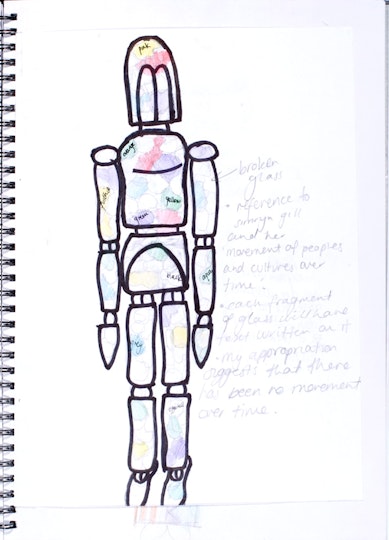 pink
orange
broken
glass
• reference to
simryn gill
and her
movement of peoples
and cultures over
time.
yellow
green
black
• each fragment
of glass will have
text written on it
• my appropriation
suggests that there
has been no movement
over time.